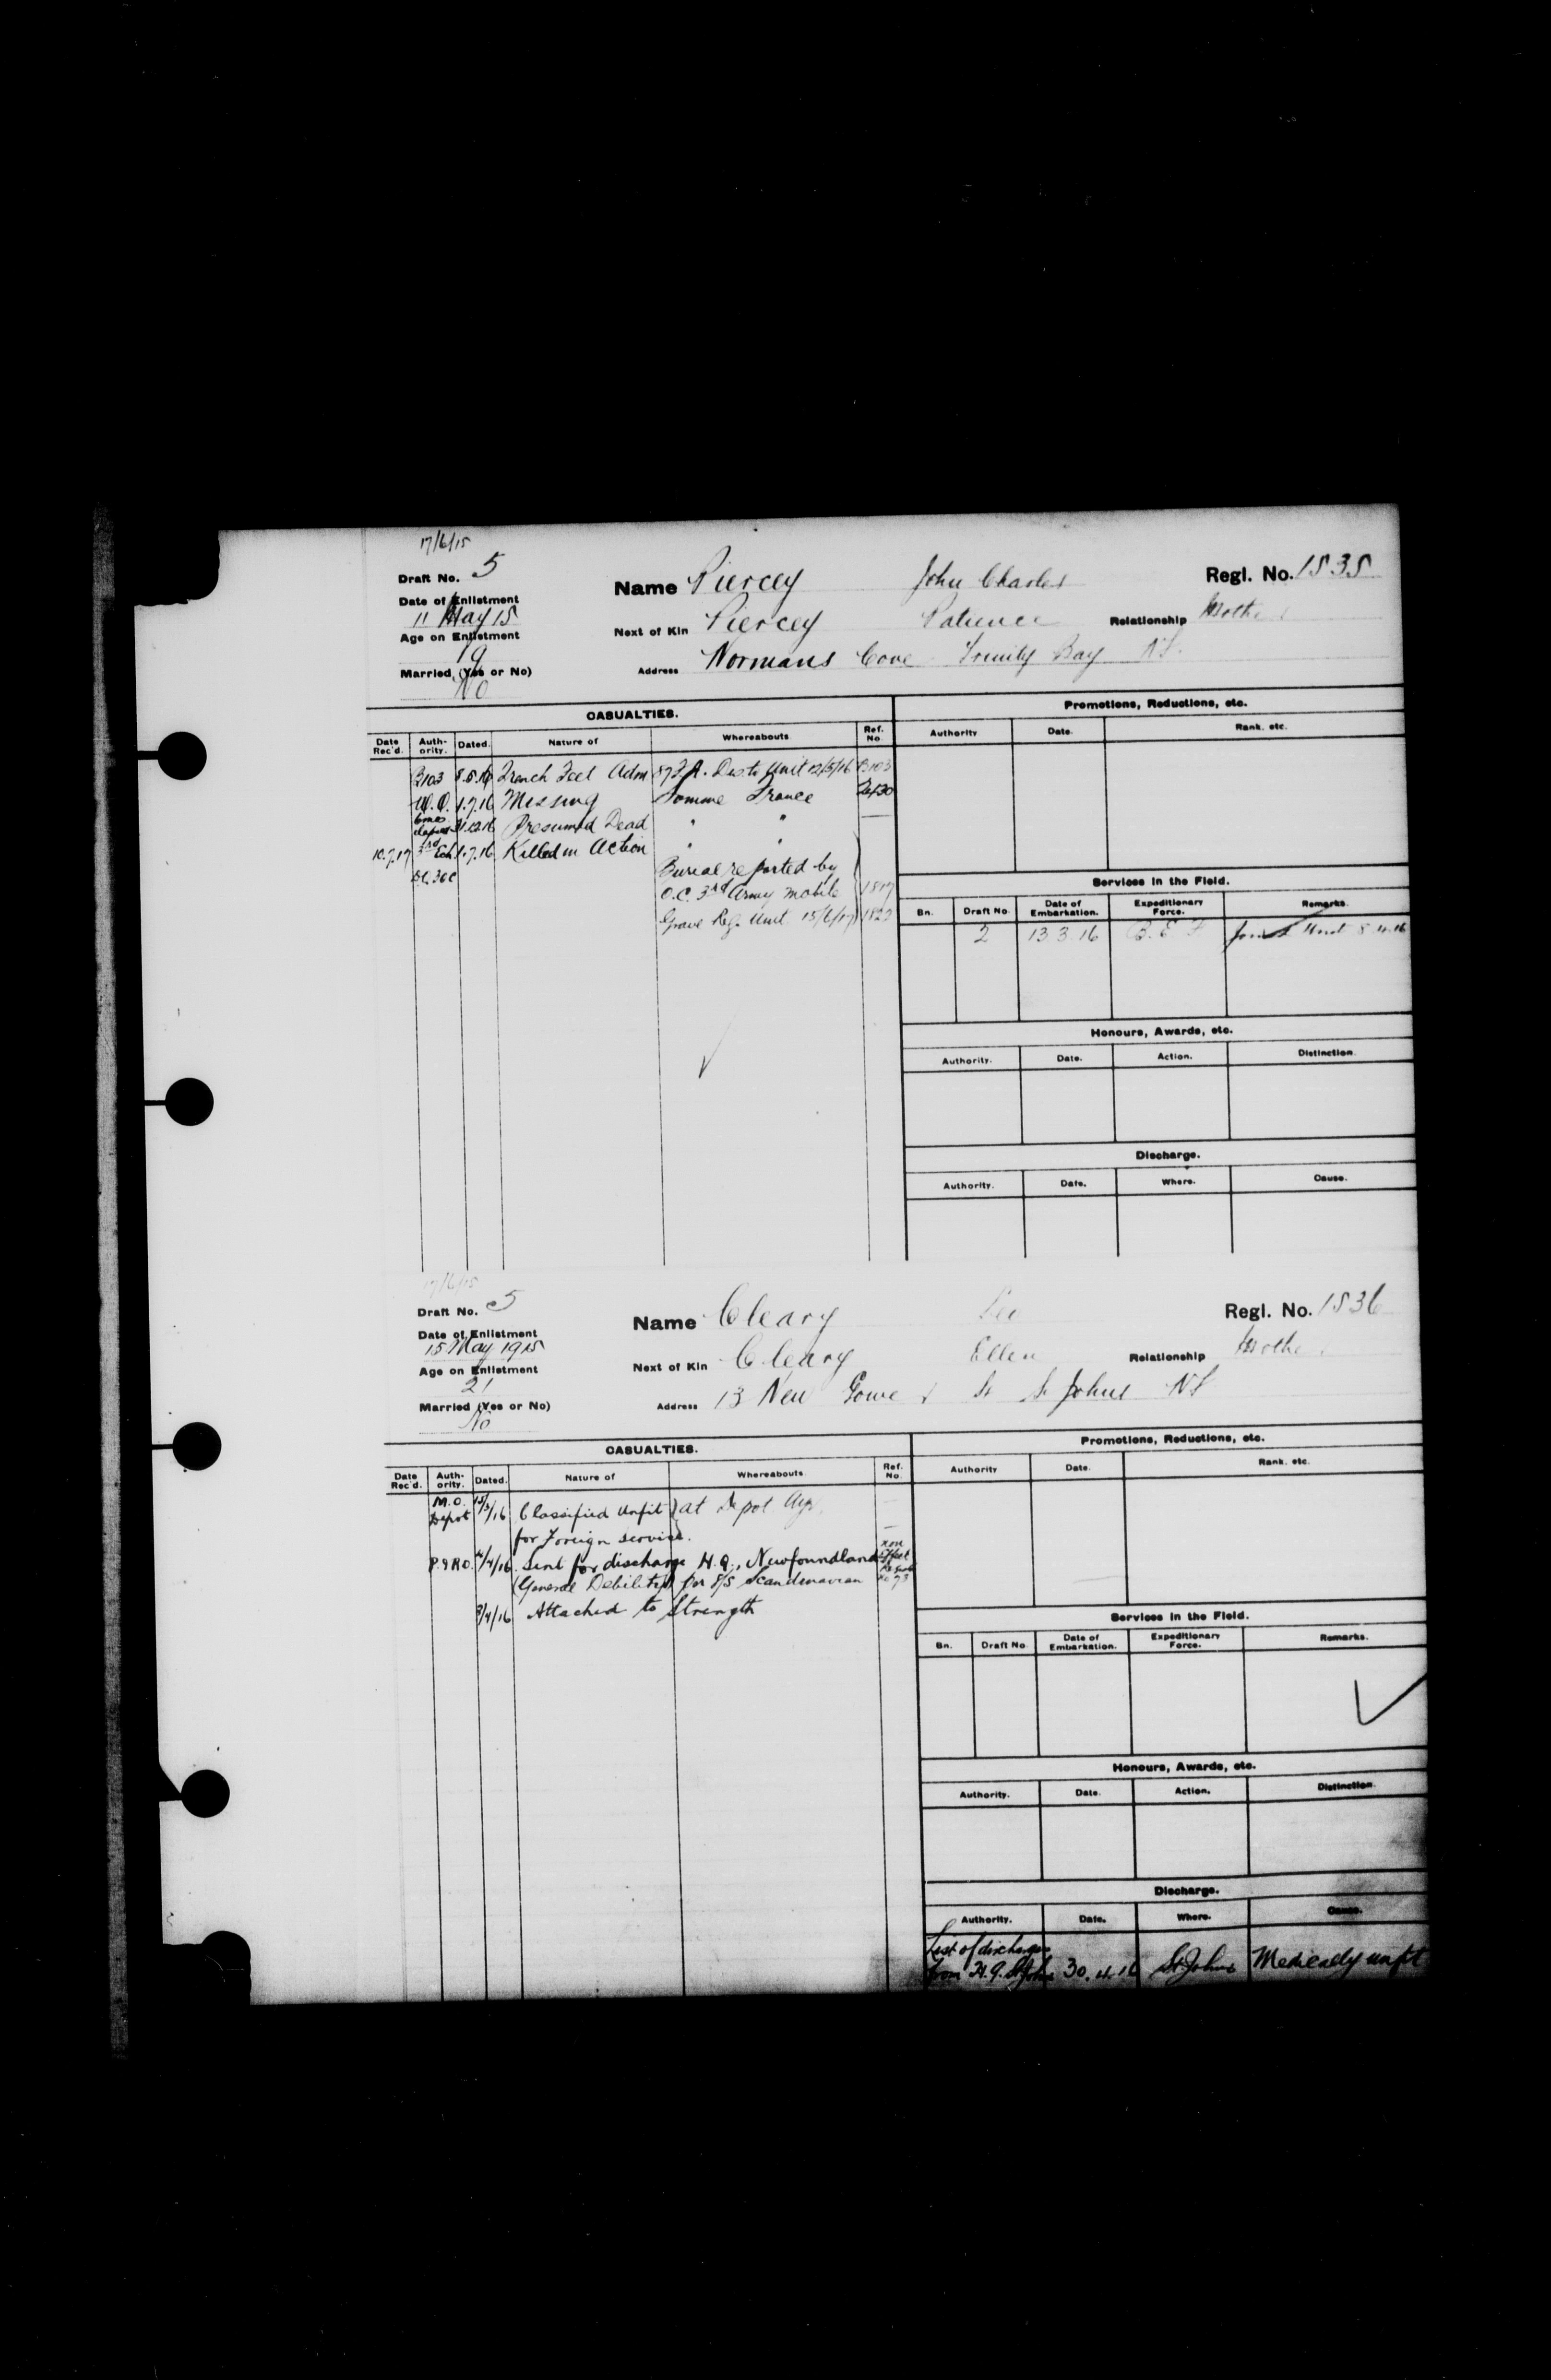 17/6/15
Draft No. 5
Name Piercey John Charles Regl. No. 1535
Date of Enlistment
11 May 15
Next of Kin Piercey Patience Relationship Mother
Age on Enlistment
19
Address Normans Cove Trinity Bay Nf.
Married (Yes or No)
No
CASUALTIES.
Promotions, Reductions, etc.
Date Rec'd. Authority. Dated. Nature of Whereabouts Ref. No.
Authority Date. Rank. etc.
B103 8.5.16 Trench Feet Adm 87 F.A. Dis to Unit 12/5/16 B103
W.O. 1.7.16 Missing Somme France
31.12.16 Presumed Dead " "
10.7.17 3rd Ech 1.7.16 Killed in Action " "
Burial reported by
O.C. 3rd Army Mobile 1817
Grave Reg. Unit 15/6/17
Services in the Field.
Bn. Draft No. Date of Embarkation. Expeditionary Force. Remarks.
2 13 3 16 B.E.F Joined Unit 8.4.16
Honours, Awards, etc.
Authority. Date. Action. Distinction.
Discharge.
Authority. Date. Where. Cause.
17/6/15
Draft No. 5
Name Cleary Leo Regl. No. 1536
Date of Enlistment
15 May 1915
Next of Kin Cleary Ellen Relationship Mother
Age on Enlistment
21
Address 13 New Gower St St Johns Nf
Married (Yes or No)
No
CASUALTIES.
Promotions, Reductions, etc.
Date Rec'd. Authority. Dated. Nature of Whereabouts Ref. No.
Authority Date. Rank. etc.
M.O. Depot 15/3/16 Classified Unfit } at Depot Ayr.
for Foreign service.
P.&R.O. 4/4/16 Sent for discharge H.Q., Newfoundland
(General Debility) per S/S Scandinavian
3/4/16 Attached to Strength
Services in the Field.
Bn. Draft No. Date of Embarkation. Expeditionary Force. Remarks.
Honours, Awards, etc.
Authority. Date. Action. Distinction.
Discharge.
Authority. Date. Where. Cause.
List of discharges
from H.Q. St Johns 30.4.16 St Johns Medically unfit